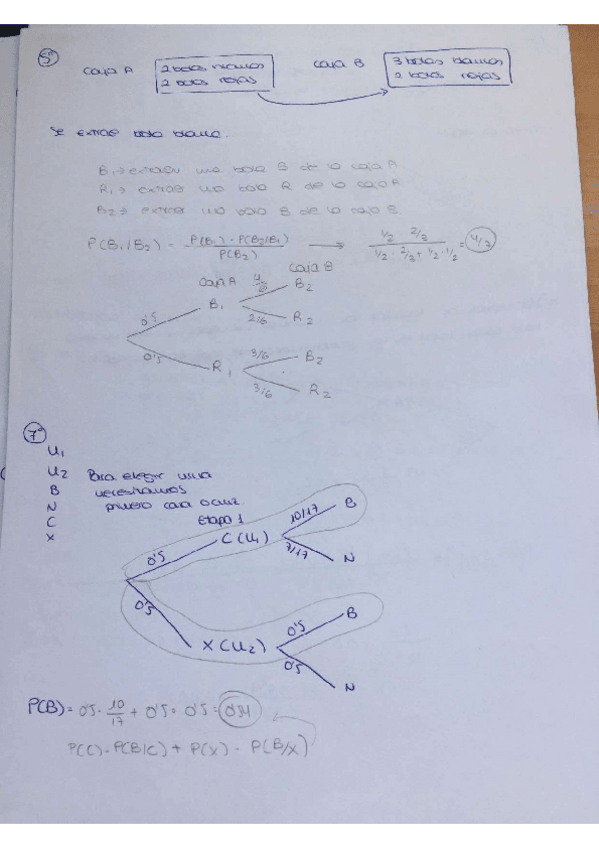 5º
Caja A 2 bolas blancas Caja B 3 bolas blancas
2 bolas rojas 2 bolas rojas
Se extrae bola blanca.
B₁ → extraen una bola B de la caja A
R₁ → extrae una bola R de la caja A
B₂ → extrae una bola B de la caja B
P(B₁/B₂) = P(B₁) · P(B₂/B₁) / P(B₂) → 1/2 · 2/3 / 1/2 · 2/3 + 1/2 · 1/2 = 4/7
Caja A Caja B
0'5 B₁ 4/6 B₂
2/6 R₂
0'5 R₁ 3/6 B₂
3/6 R₂
7º
U₁
U₂ Para elegir urna
B necesitamos
N primero cara o cruz.
C etapa 1
X
0'5 C (U₁) 10/17 B
7/17 N
0'5 X (U₂) 0'5 B
0'5 N
P(B) = 0'5 · 10/17 + 0'5 · 0'5 = 0'54
P(C) · P(B/C) + P(X) · P(B/X)